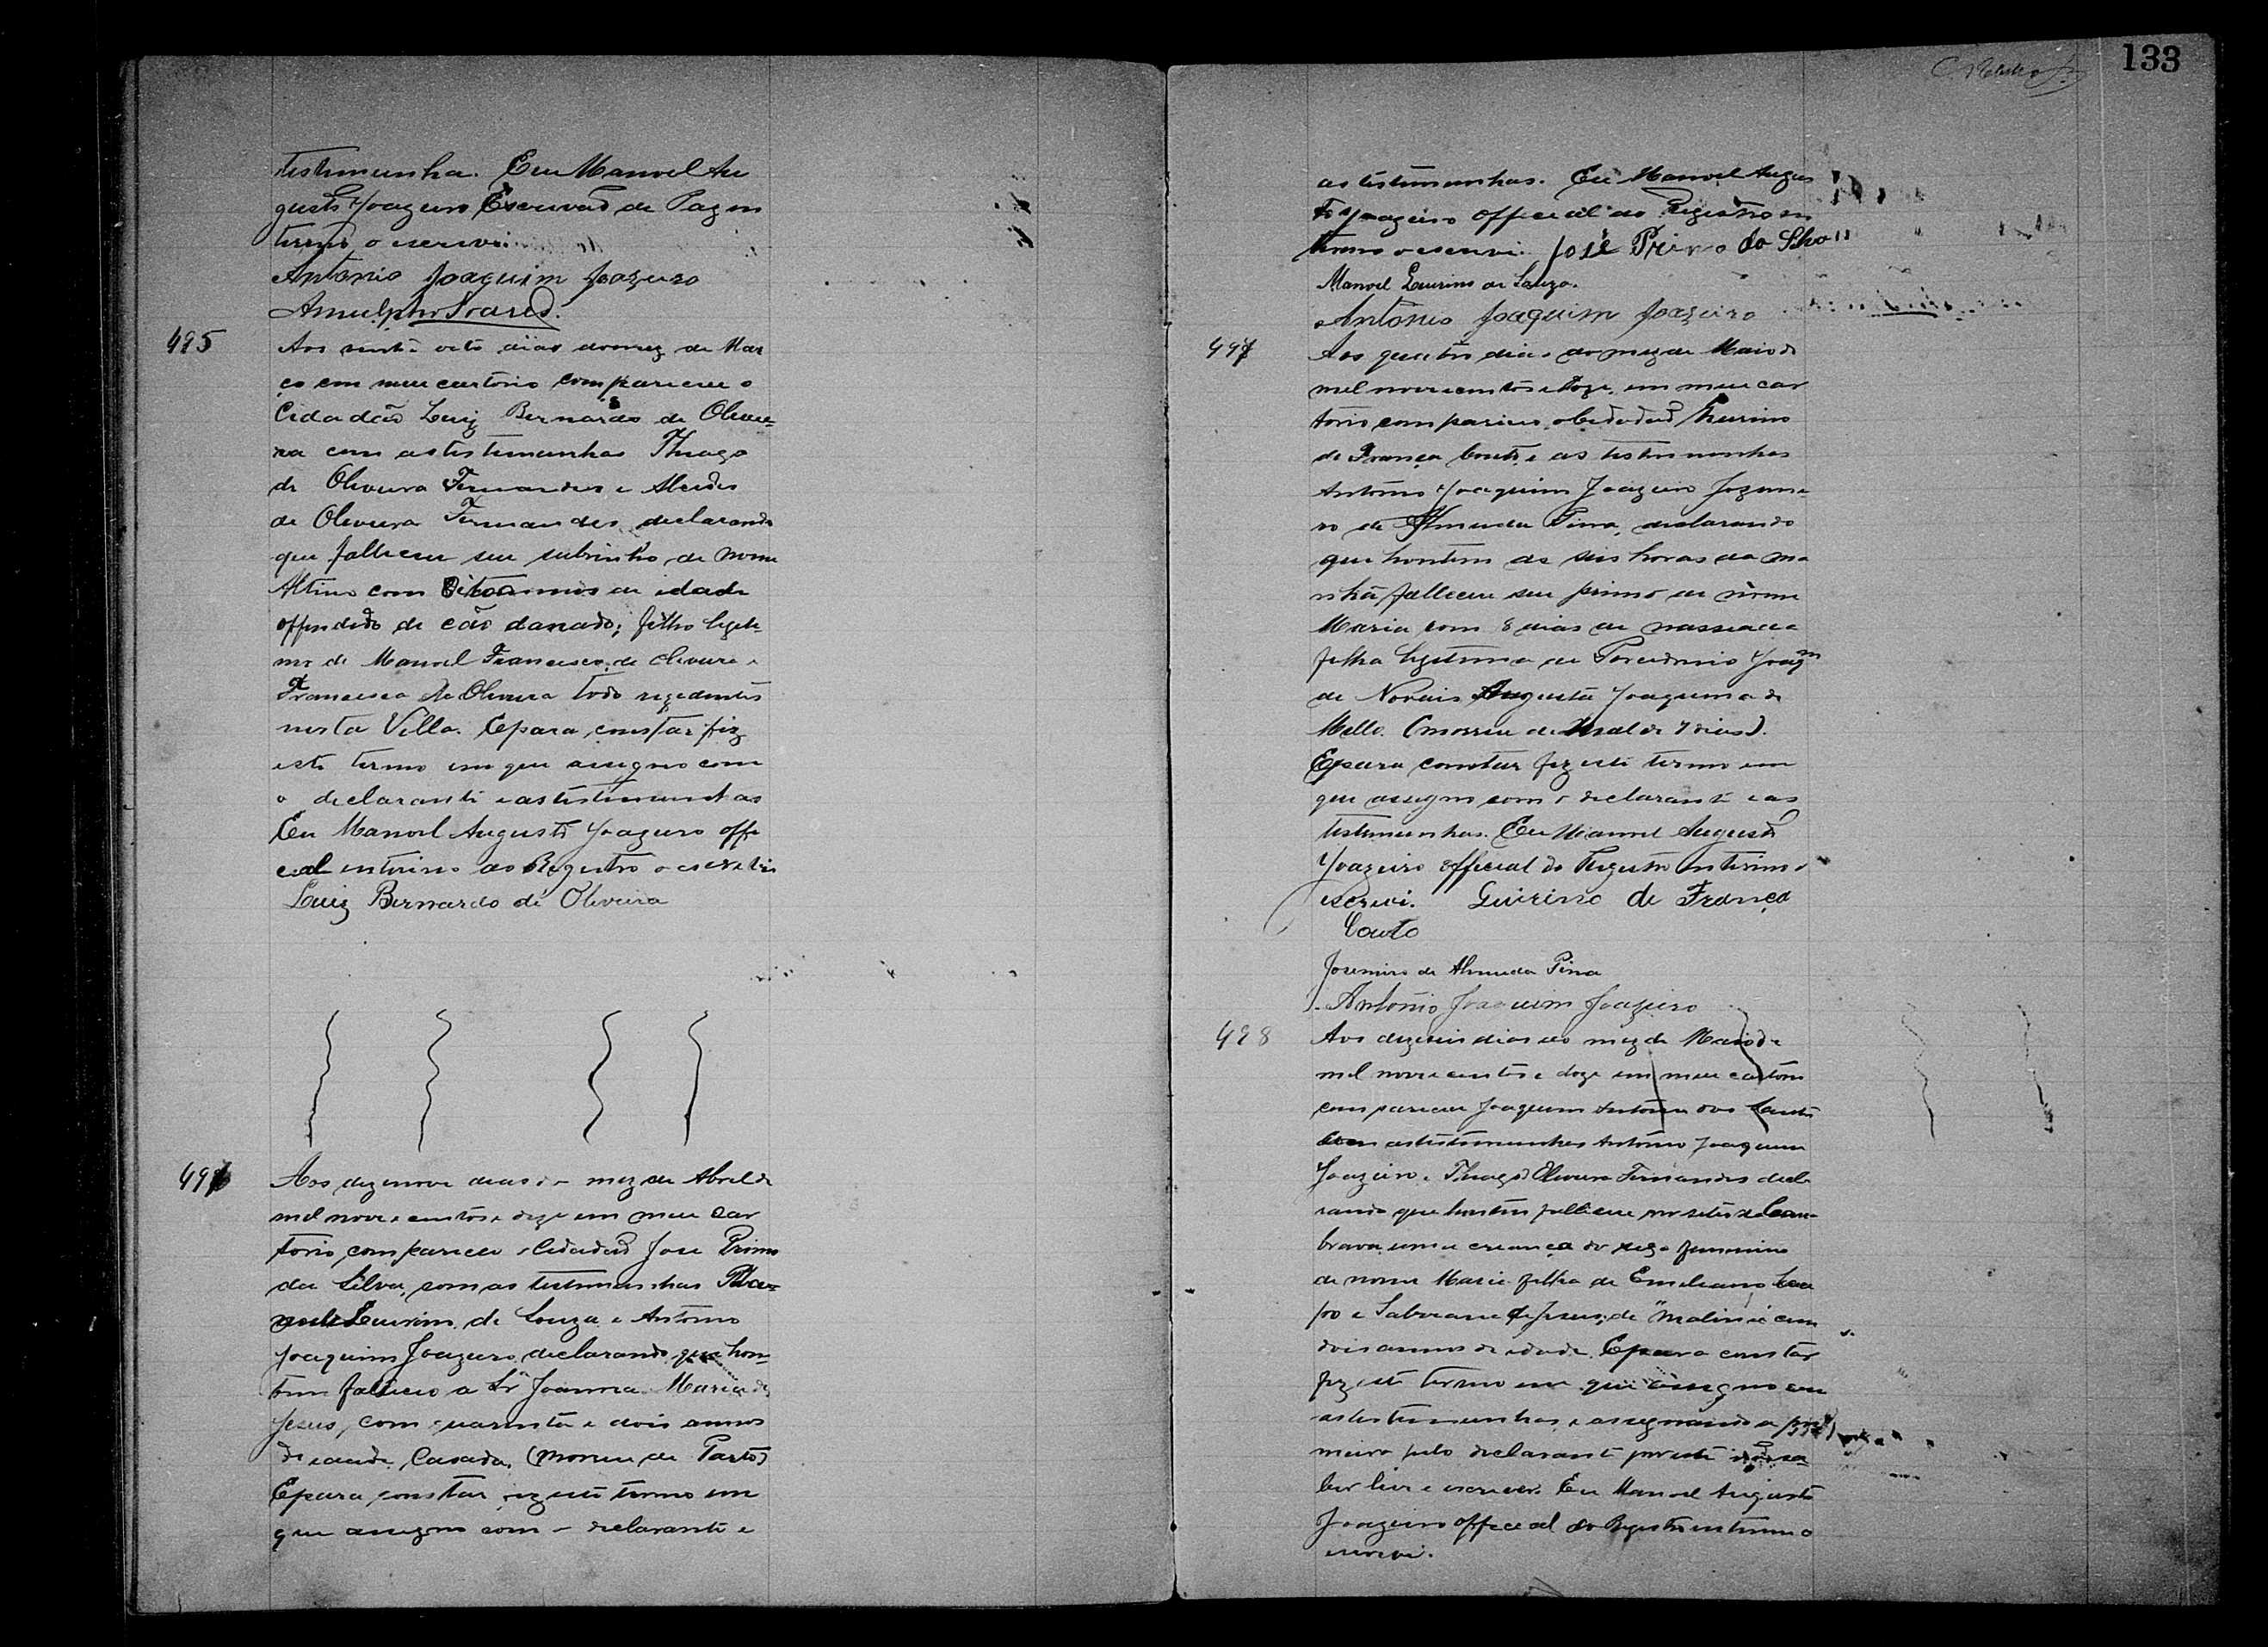 testemunha. Eu Manoel Au
gusto Joazeiro Escrivão de Paz in
terino o escrevi.
Antonio Joaquim Joazeiro
Arnulpho Soares.
495
Aos vinte oito dias do mez de Mar
ço em meu cartorio compareceu o
Cidadão Luiz Bernardo de Olivei-
ra com as testimunhas Thiago
de Oliveira Fernandes e Alcides
de Oliveira Fernandes, declarando
que falleceu seu subrinho de nome
Altino com Oito annos de idade
offendido de cão danado; filho legiti-
mo de Manoel Francisco de Oliveira e
Francisca de Oliveira todo rezedentes
nesta Villa. E para constar fiz
este termo em que assigno com
o declarante e as testimunhas
Eu Manoel Augusto Joazeiro offi
cial interino do Registro o escrevi
Luiz Bernardo de Oliveira
496
Aos dezenove dias do mez de Abril de
mil novecentos e doze em meu car
torio compareceu o Cidadão José Primo
da Silva, com as testimunhas Ma-
noel Leurino de Souza e Antonio
Joaquim Joazeiro declarando que hon-
tem falleceu a Srª Joanna Maria de
Jesus, com quarenta e dois annos
de idade, Casada, (morreu de Parto)
E para constar fiz este termo em
que assigno com o declarante e
133
as testimunhas. Eu Manoel Augus
to Joazeiro official do Registro in
terino o escrevi. José Primo da Silva
Manoel Leurino de Souza.
Antonio Joaquim Joazeiro
497
Aos quatro dias do mez de Maio de
mil novecentos e doze, em meu car
torio compareceu o Cidadão
de França Couto, e as testimunhas
Antonio Joaquim Joazeiro Jozemi-
ro de Almeida Pina, declarando
que hontem as seis horas da ma
nhã falleceu seu primo de nome
Maria com 8 dias de nasscida
filha legitima de Joaqm
de Novais Augusta Joaquina de
Mello. (morreu de Mal de 7 dias).
E para constar fiz este termo em
que assigno com o declarante e as
testimunhas. Eu Manoel Augusto
Joazeiro official do Registro interino o
escrevi. Guirino de França
Couto
Josemiro de Almeida Pina
Antonio Joaquim Joazeiro
498
Aos dezeseis dias do mez de Maio de
mil novecentos e doze em meu cartorio
compareceu Joaquim Antonio dos Santos
com as testimunhas Antonio Joaquim
Joazeiro e Thiago Oliveira Fernandes decla
rando que hontem falleceu no sitio
brava uma creança do sexo feminino
de nome Maria filha de Emiliano
e de Jesus, de
dois annos de idade. E para constar
fiz este termo em que assigno com
as testimunhas, e assignando a pri
meira pelo declarante por este não sa-
ber ler e escrever. Eu Manoel Augusto
Joazeiro official do Registro interino o
escrevi.